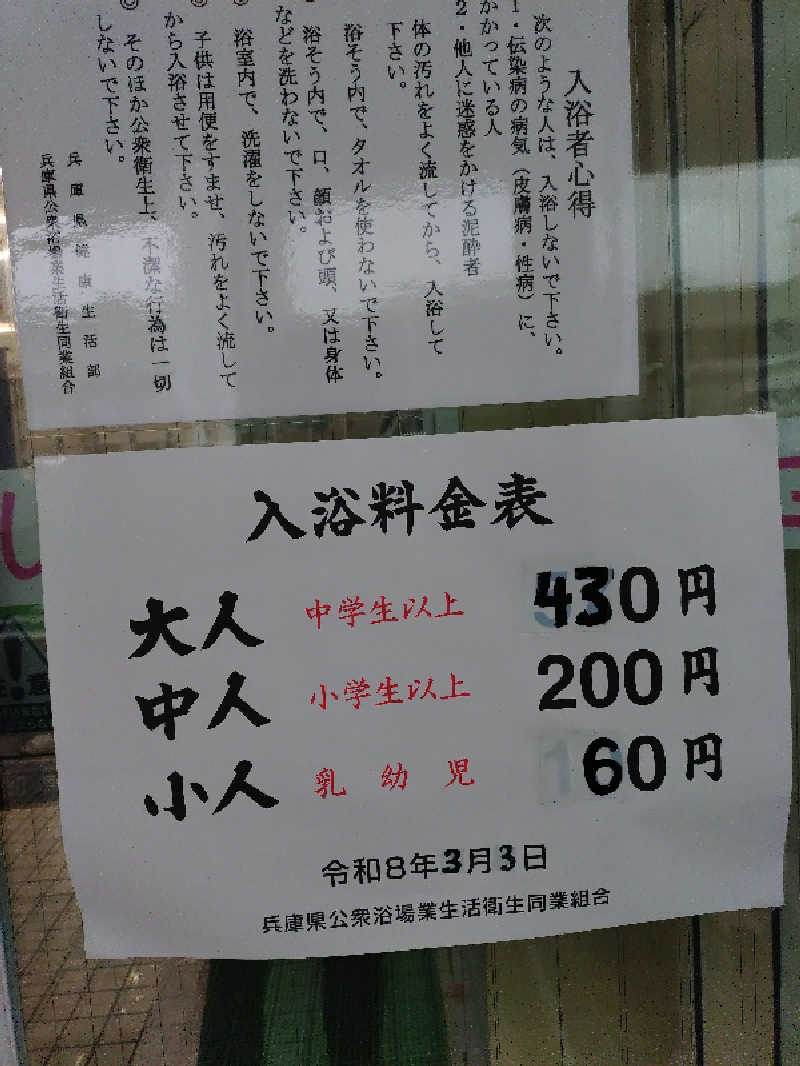 入浴者心得
次のような人は、入浴しないで下さい。
1・伝染病の病気（皮膚病・性病）に、
かかっている人
2・他人に迷惑をかける泥酔者
体の汚れをよく流してから、入浴して
下さい。
浴そう内で、タオルを使わないで下さい。
浴そう内で、口、顔および頭、又は身体
などを洗わないで下さい。
浴室内で、洗濯をしないで下さい。
子供は用便をすませ、汚れをよく流して
から入浴させて下さい。
◎ そのほか公衆衛生上、不潔な行為は一切
しないで下さい。
兵庫県健康生活部
兵庫県公衆浴場業生活衛生同業組合
入浴料金表
大人 中学生以上 430円
中人 小学生以上 200円
小人 乳幼児 60円
令和8年3月3日
兵庫県公衆浴場業生活衛生同業組合